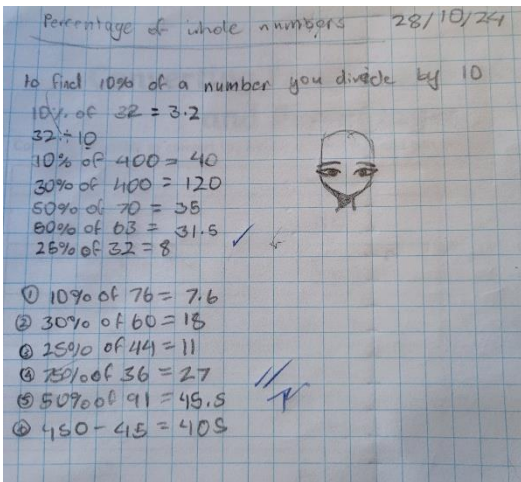 Percentage of whole numbers 28/10/24
to find 10% of a number you divide by 10
10% of 32 = 3.2
32 ÷ 10
10% of 400 = 40
30% of 400 = 120
50% of 70 = 35
50% of 63 = 31.5
25% of 32 = 8
① 10% of 76 = 7.6
② 30% of 60 = 18
③ 25% of 44 = 11
④ 75% of 36 = 27
⑤ 50% of 91 = 45.5
⑥ 450 - 45 = 405